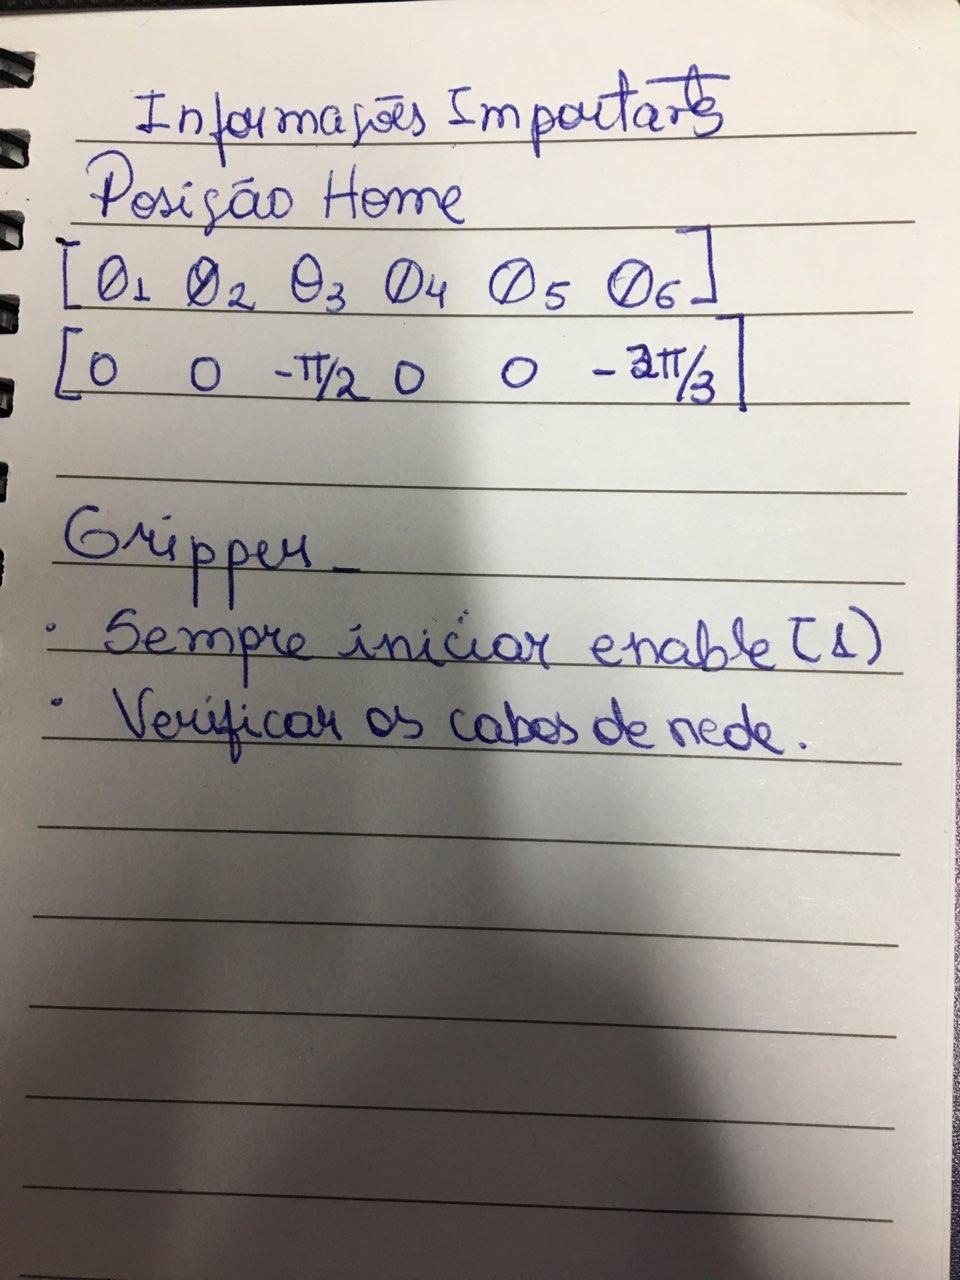 Informações Importants
Posição Home
[θ1 θ2 θ3 θ4 θ5 θ6]
[0 0 -π/2 0 0 -2π/3]
Gripper_
· Sempre iniciar enable (1)
· Verificar os cabos de rede.